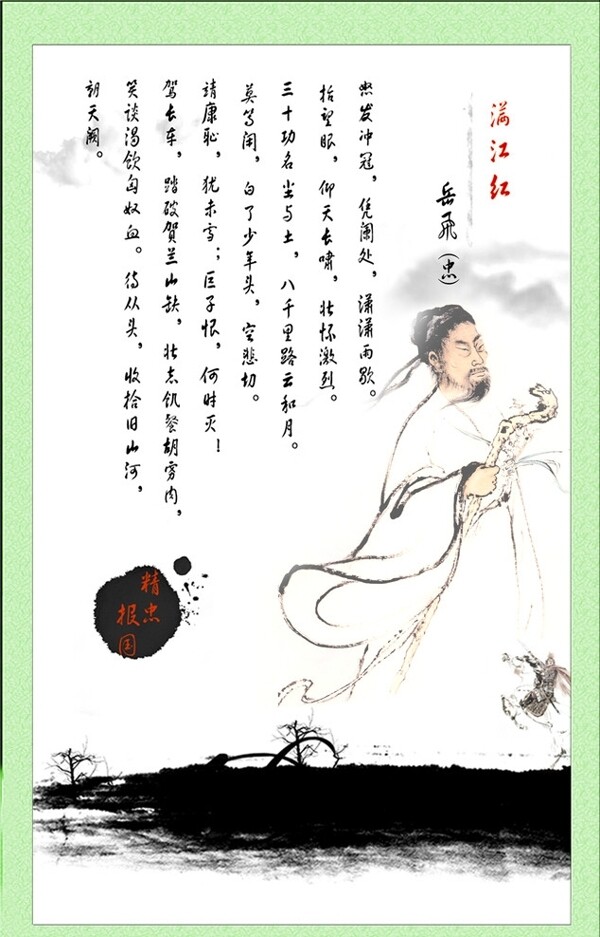 满江红
岳飞（忠）
怒发冲冠，凭阑处，潇潇雨歇。
抬望眼，仰天长啸，壮怀激烈。
三十功名尘与土，八千里路云和月。
莫等闲，白了少年头，空悲切。
靖康耻，犹未雪；臣子恨，何时灭！
驾长车，踏破賀兰山缺，壮志饥餐胡虏肉，
笑谈渴饮匈奴血。待从头，收拾旧山河，
朝天阙。
精忠
报国